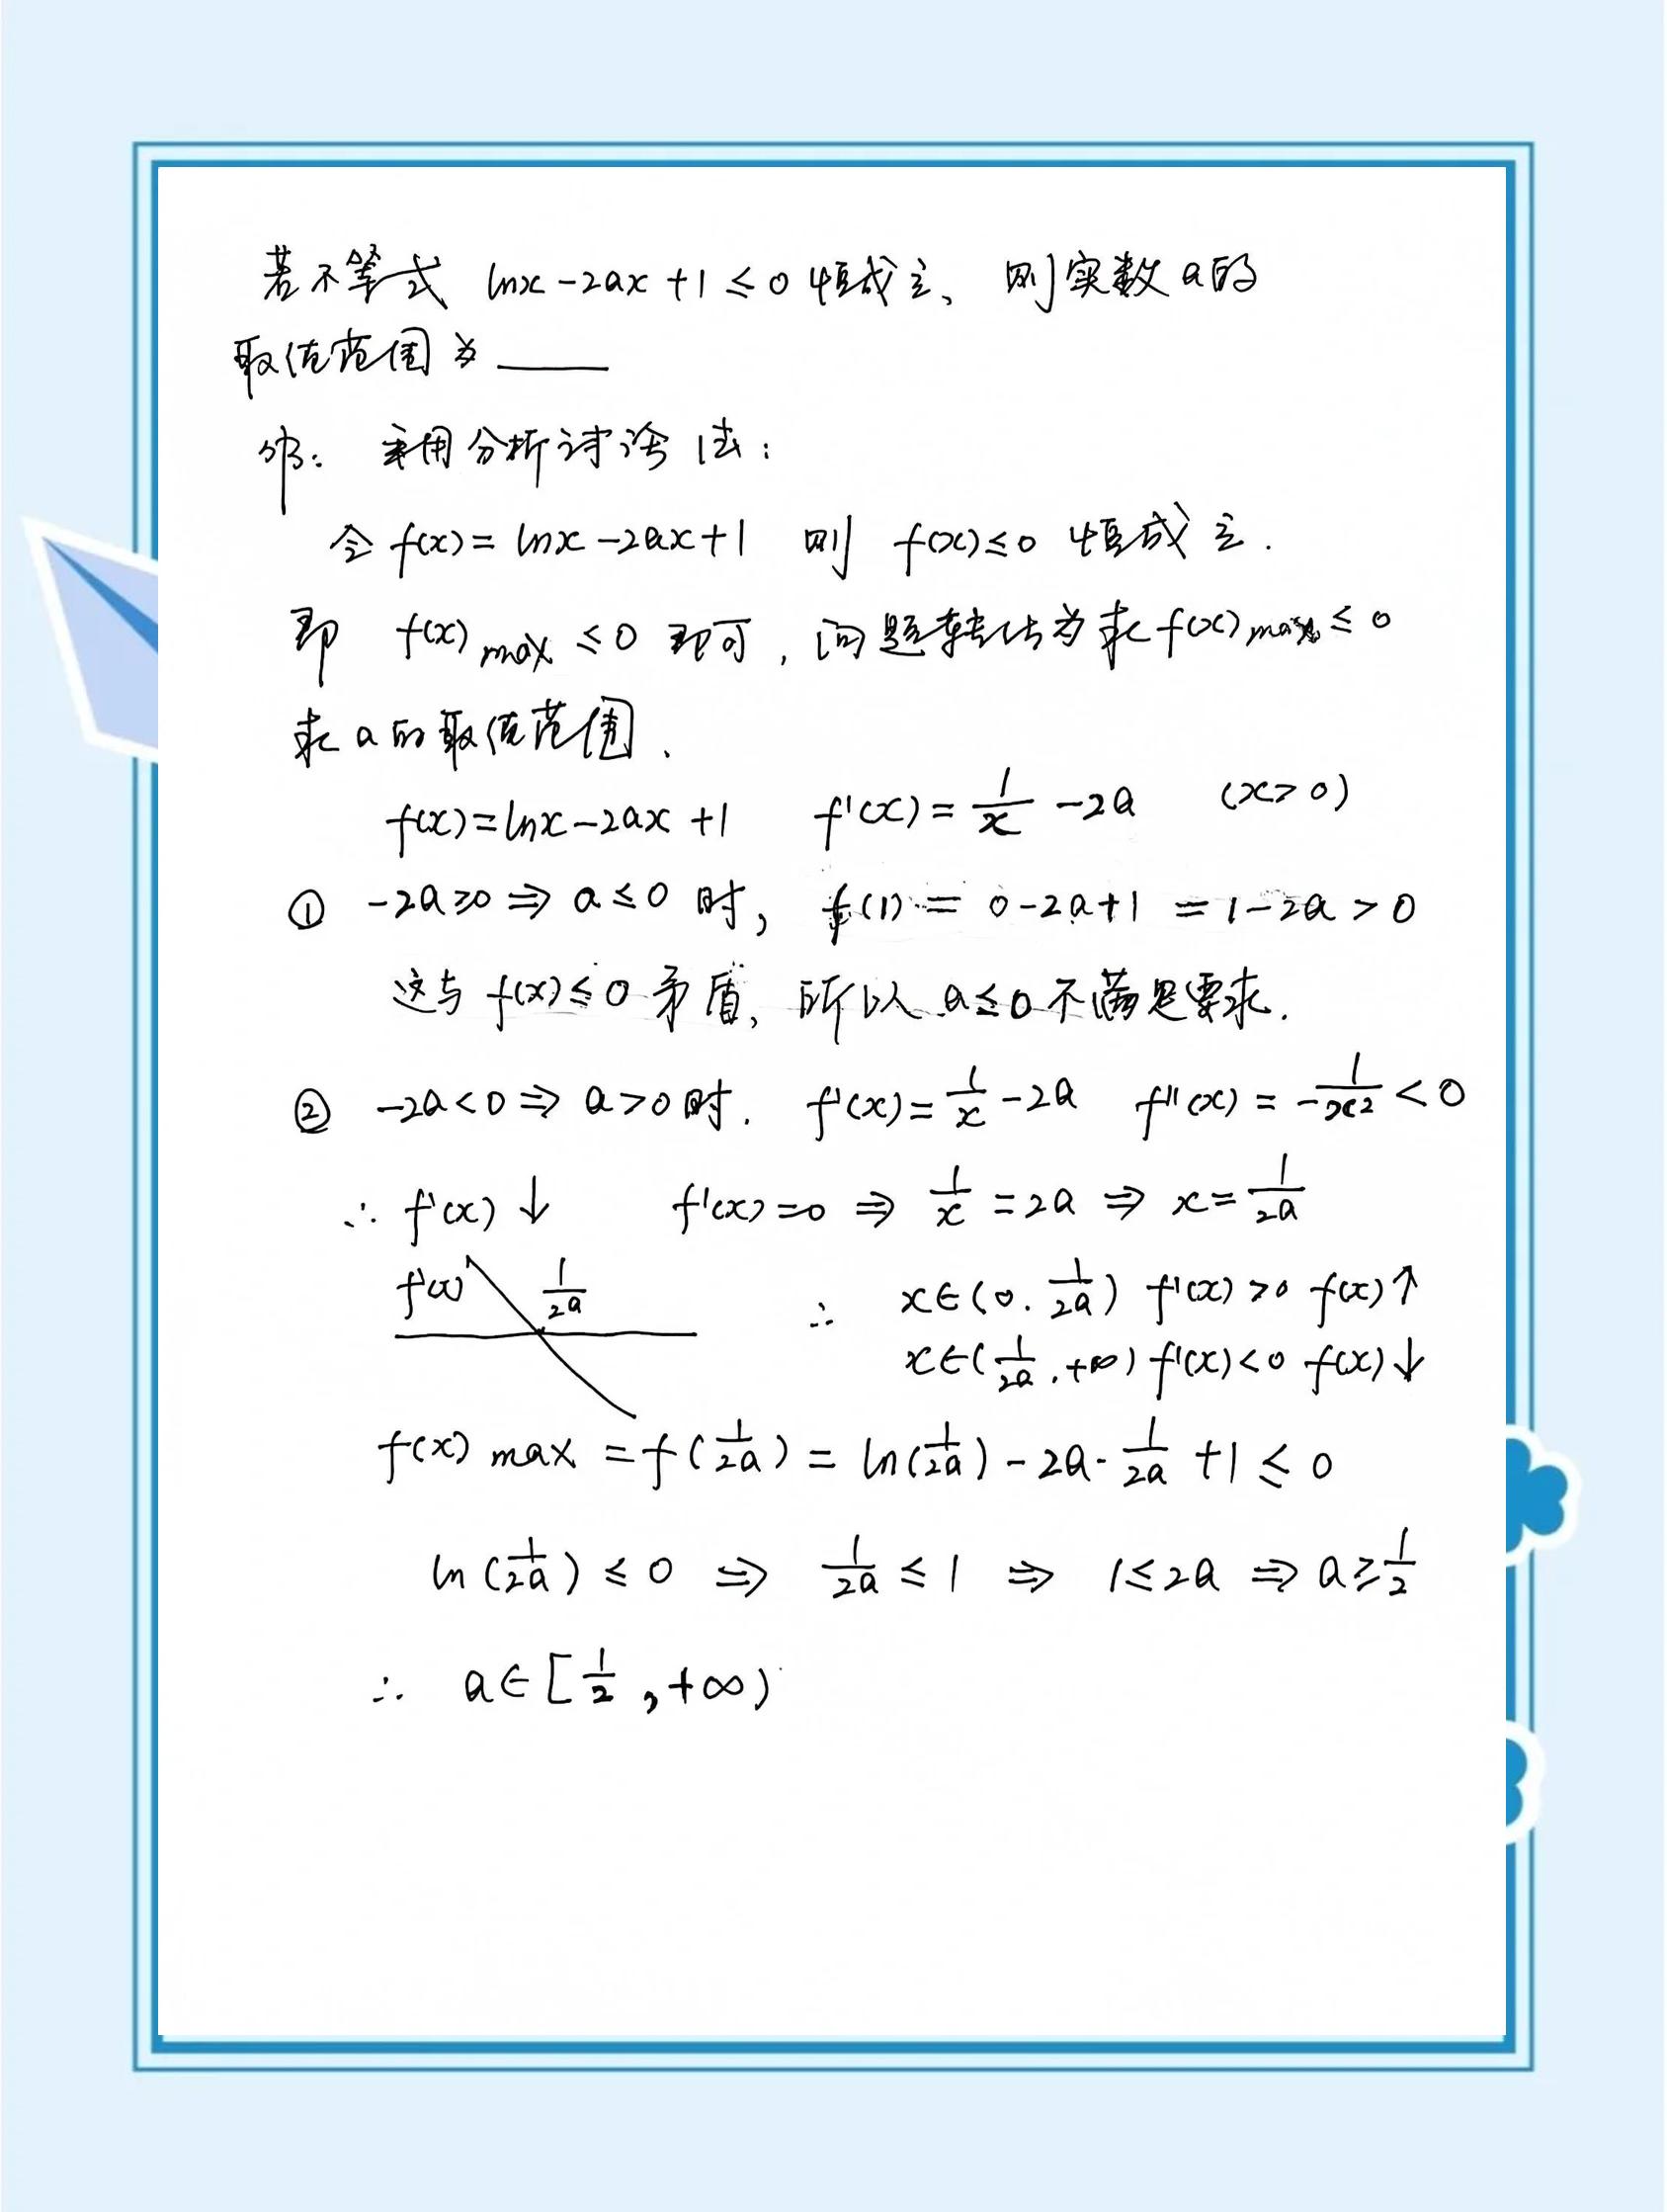 若不等式 lnx-2ax+1≤0 恒成立、则实数a的
取值范围为____
解: 采用分析讨论法:
令 f(x)=lnx-2ax+1 则 f(x)≤0 恒成立.
即 f(x)max≤0 即可, 问题转化为求f(x)max≤0
求a的取值范围.
f(x)=lnx-2ax+1 f'(x)=1/x-2a (x>0)
① -2a≥0⇒a≤0时, f(1)=0-2a+1=1-2a>0
这与f(x)≤0矛盾, 所以a≤0不满足要求.
② -2a<0⇒a>0时. f'(x)=1/x-2a f''(x)=-1/x²<0
∴ f'(x)↓ f'(x)=0⇒1/x=2a⇒x=1/2a
f'(x) 1/2a ∴ x∈(0.1/2a) f'(x)>0 f(x)↑
x∈(1/2a,+∞) f'(x)<0 f(x)↓
f(x)max=f(1/2a)=ln(1/2a)-2a·1/2a+1≤0
ln(1/2a)≤0⇒1/2a≤1⇒1≤2a⇒a≥1/2
∴ a∈[1/2,+∞)